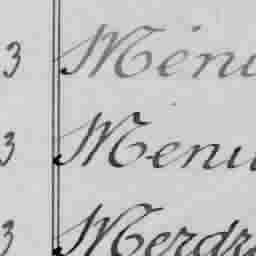 3 Ménu
3 Menu
3 Merdr